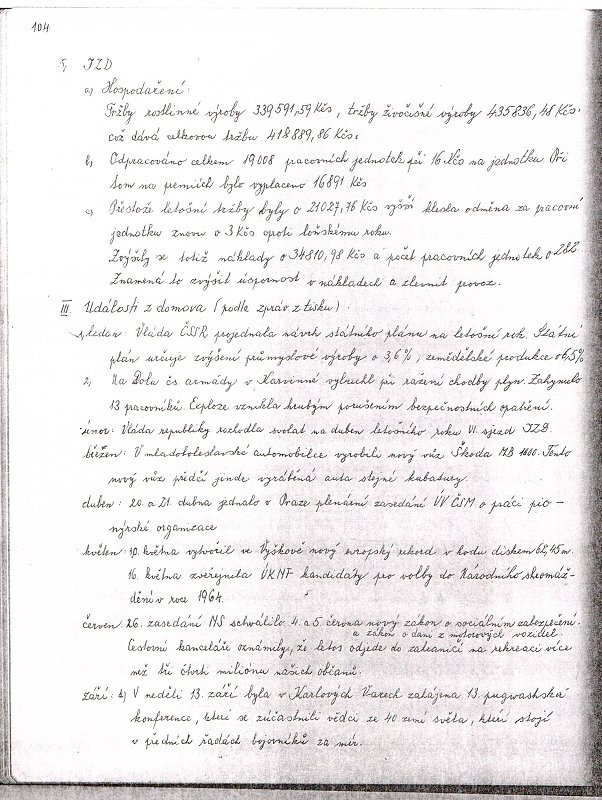 104
5, JZD
a) Hospodaření:
Tržby rostlinné výroby 339591,59 Kčs, tržby živočišné výroby 435836,48 Kčs
což dává celkovou tržbu 418889,86 Kčs.
b) Odpracováno celkem 19008 pracovních jednotek při 16 Kčs na jednotku. Při
tom na premiích bylo vyplaceno 16891 Kčs
c) Přestože letošní tržby byly o 21027,76 Kčs vyšší klesla odměna za pracovní
jednotku znovu o 3 Kčs oproti loňskému roku.
Zvýšily se totiž náklady o 34810,98 Kčs a počet pracovních jednotek o 282
Znamená to zvýšit úspornost v nákladech a zlevnit provoz.
III. Události z domova (podle zpráv z tisku).
1, leden: Vláda ČSSR projednala návrh státního plánu na letošní rok. Státní
plán určuje zvýšení průmyslové výroby o 3,6%, zemědělské produkce o 6,5%
2, Na Dolu čs armády v Karvinné vybuchl při ražení chodby plyn. Zahynulo
13 pracovníků. Exploze vznikla hrubým porušením bezpečnostních opatření.
únor: Vláda republiky rozhodla svolat na duben letošního roku VI. sjezd JZD.
březen: V mladoboleslavské automobilce vyrobili nový vůz Škoda MB 1000. Tento
nový vůz předčí jinde vyráběná auta stejné kubatury.
duben: 20. a 21. dubna jednalo v Praze plenární zasedání ÚV ČSM o práci pio-
nýrské organizace
květen: 10. května vytvořil ve Výškově nový evropský rekord v hodu diskem 62,45 m.
16. května zveřejnila ÚKNF kandidáty pro volby do Národního shromáž-
dění v roce 1964.
červen: 26. zasedání NS schválilo 4. a 5 června nový zákon o sociálním zabezpečení.
a zákon o dani z motorových vozidel.
Cestovní kanceláře oznámily, že letos odjede do zahraničí na rekreaci více
než tři čtvrti miliónu našich občanů.
září: 1) V neděli 13. září byla v Karlových Varech zahájena 13. pugwashská
konference, které se zúčastnili vědci ze 40 zemí světa, kteří stojí
v předních řadách bojovníků za mír.